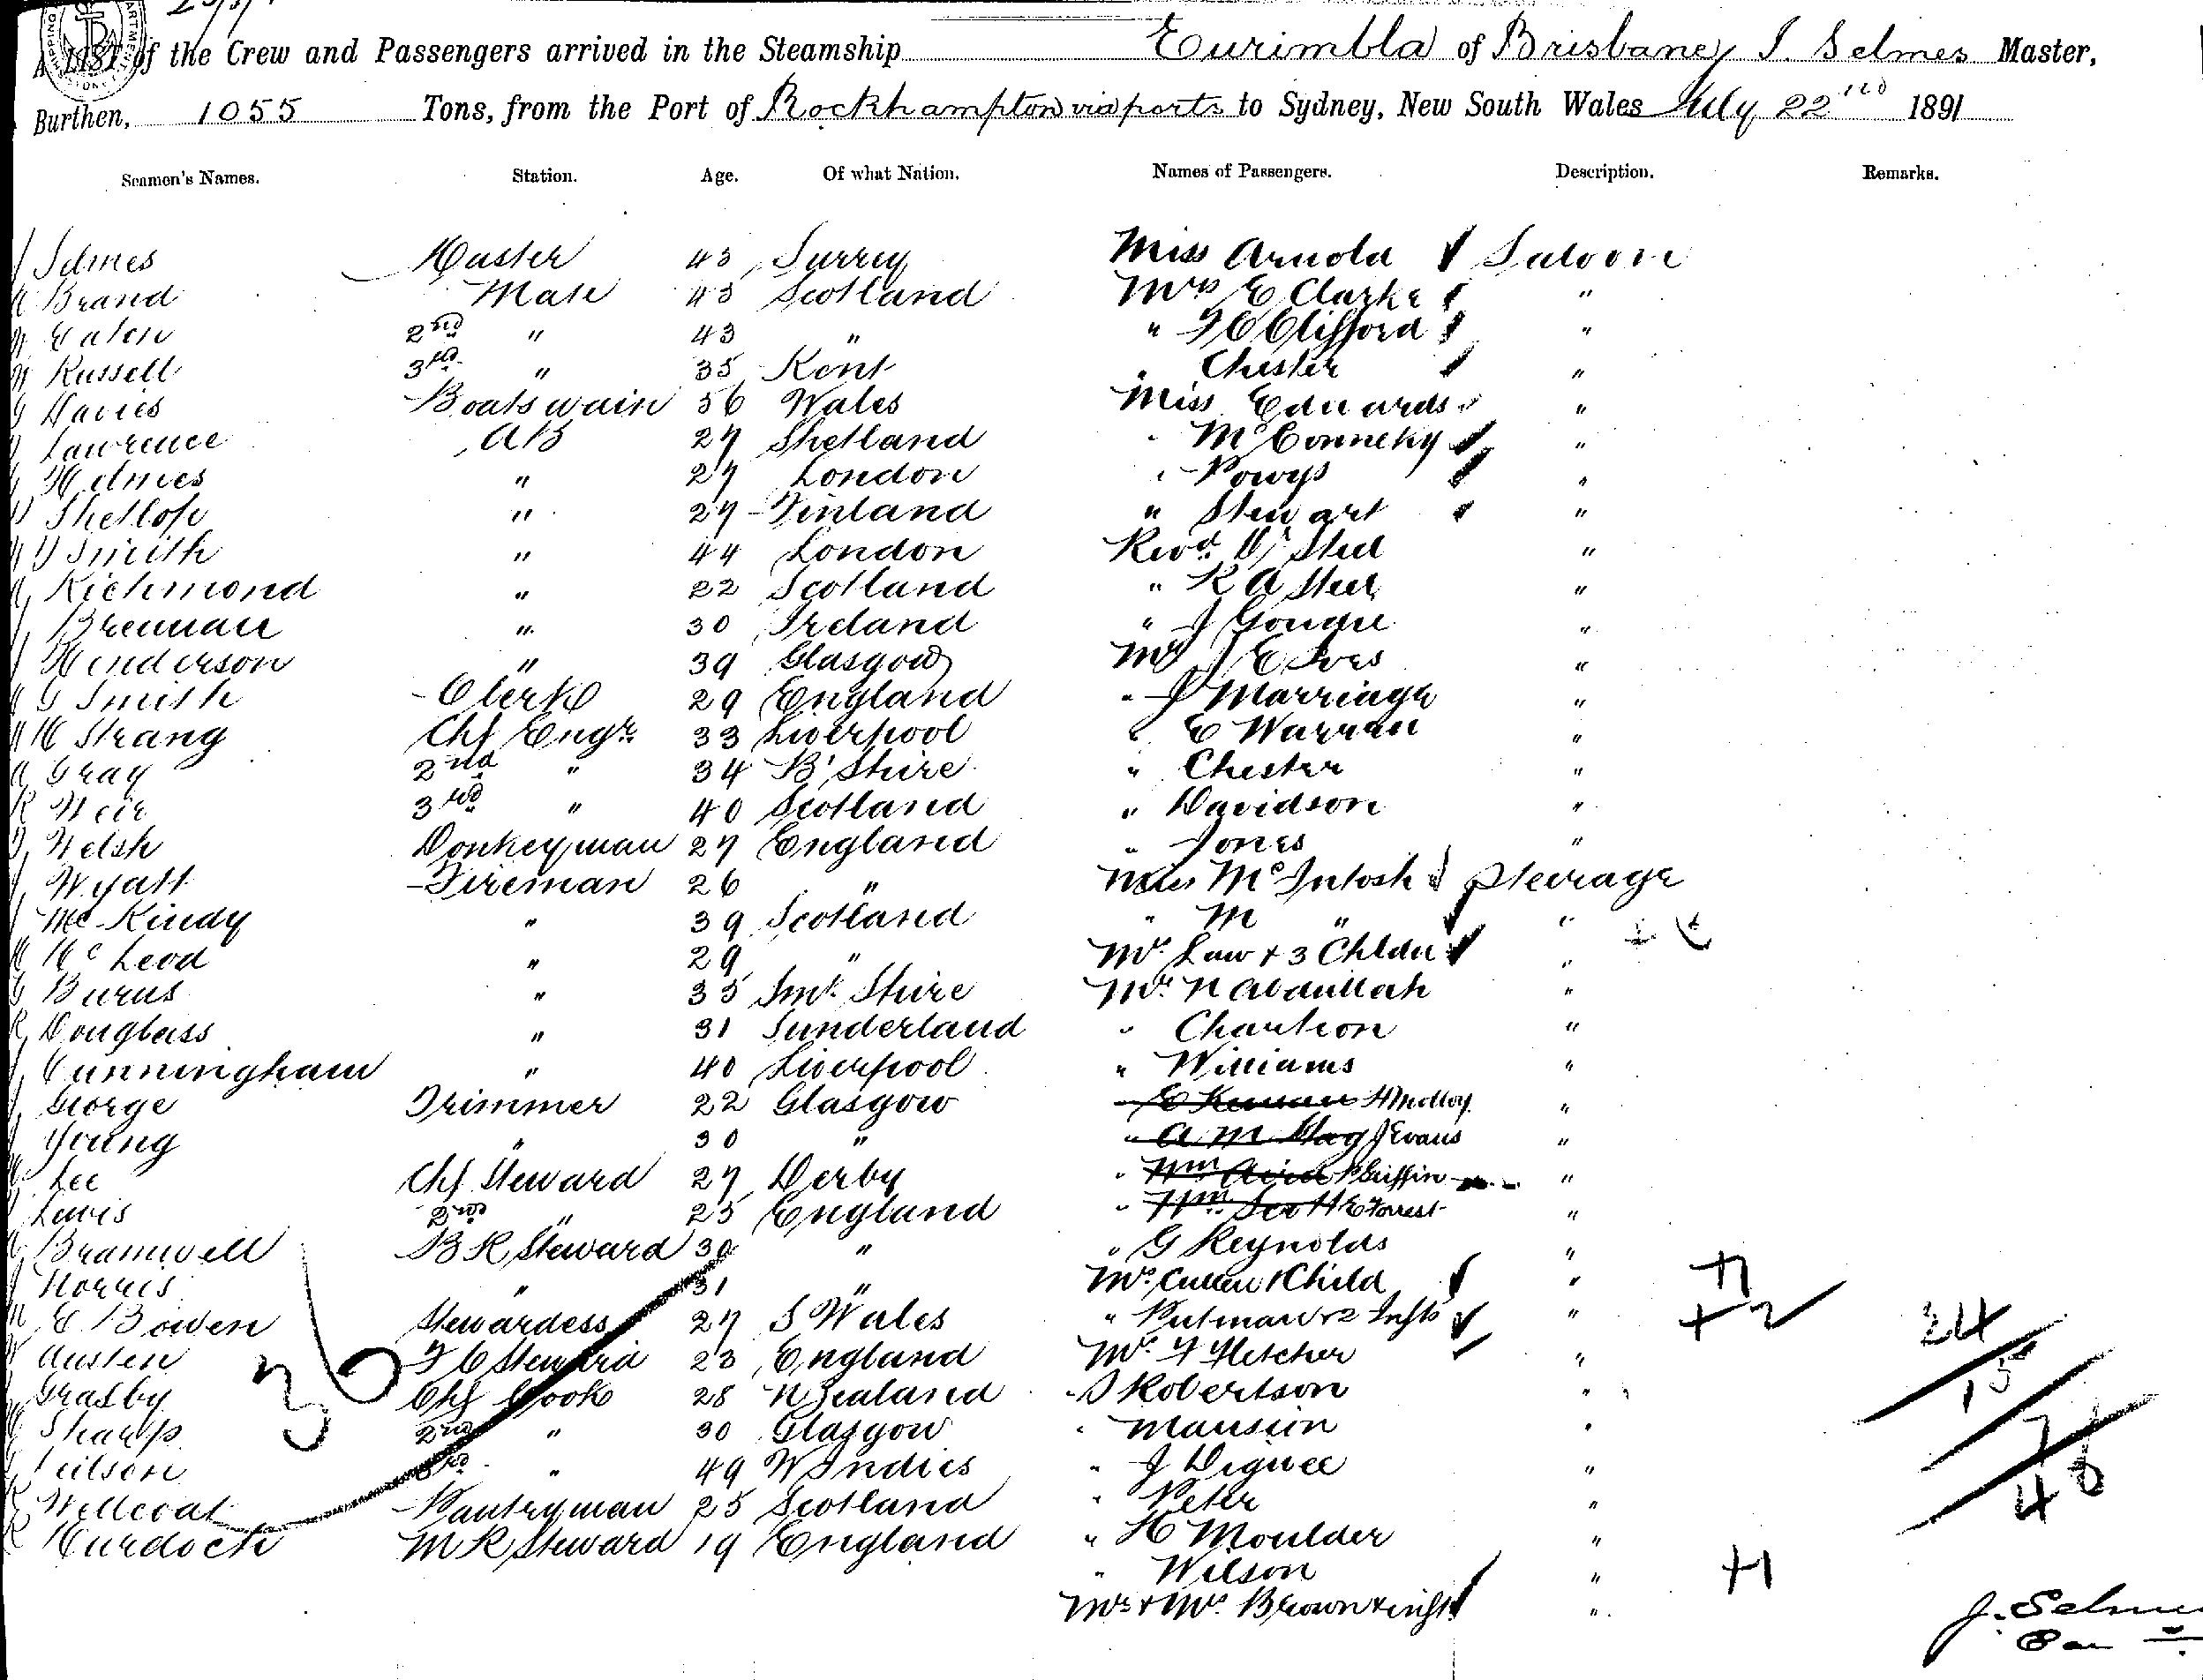 A LIST of the Crew and Passengers arrived in the Steamship Eurimbla of Brisbane, J. Selmes Master,
Burthen, 1055 Tons, from the Port of Rockhampton via ports to Sydney, New South Wales July 22nd 1891
Seamen's Names. Station. Age. Of what Nation. Names of Passengers. Description. Remarks.
J Selmes Master 43 Surrey Miss Arnold Saloon
Brand Mate 45 Scotland Mrs E Clarke "
Eaton 2nd " 43 " " F C Clifford "
Russell 3rd " 35 Kent " Chester "
Davies Boatswain 56 Wales Miss Edwards "
Lawrence AB 27 Shetland " McConneky "
Holmes " 27 London " Powys "
" 27 Finland " Stewart "
Smith " 44 London Revd Dr Steel "
Richmond " 22 Scotland " R A Steel "
Brennan " 30 Ireland " J "
Henderson " 39 Glasgow Mr J E Ives "
G Smith Clerk 29 England " J Marriage "
Strang Chf Engr 33 Liverpool " E Warran "
A Gray 2nd " 34 B'Shire " Chester "
R Weir 3rd " 40 Scotland " Davidson "
Welsh Donkeyman 27 England " Jones "
Wyatt Fireman 26 " Miss McIntosh Steerage
McKindy " 39 Scotland " M " "
McLeod " 29 " Mrs Law + 3 Childn "
G Burns " 35 Shire Mr N Abdullah "
R Douglass " 31 Sunderland " Charlton "
J Cunningham " 40 Liverpool " Williams "
J George Trimmer 22 Glasgow H Medley "
J Young " 30 " " A M Hay J Evans "
Lee Chf Steward 27 Derby " Wm Aird P Griffin "
Lewis 2nd " 25 England " Wm Scott E Forrest "
Bramwell B R Steward 30 " " G Reynolds "
J Norris " 31 " Mrs Cullen 1 Child " +1
E Bowen Stewardess 27 S Wales " Putman + 2 Infts " +2
Austen F C Steward 23 England Mr F Fletcher "
Grasby Chf Cook 28 N Zealand " Robertson "
Sharp 2nd " 30 Glasgow " "
Neilson 3rd " 49 W Indies " J Dignee "
Wellcoat Pantryman 25 Scotland " Peter "
R Murdoch M R Steward 19 England " H Moulder "
" Wilson " +1
Mr + Mrs Brown + inft "
36
24
15
J. Selmes